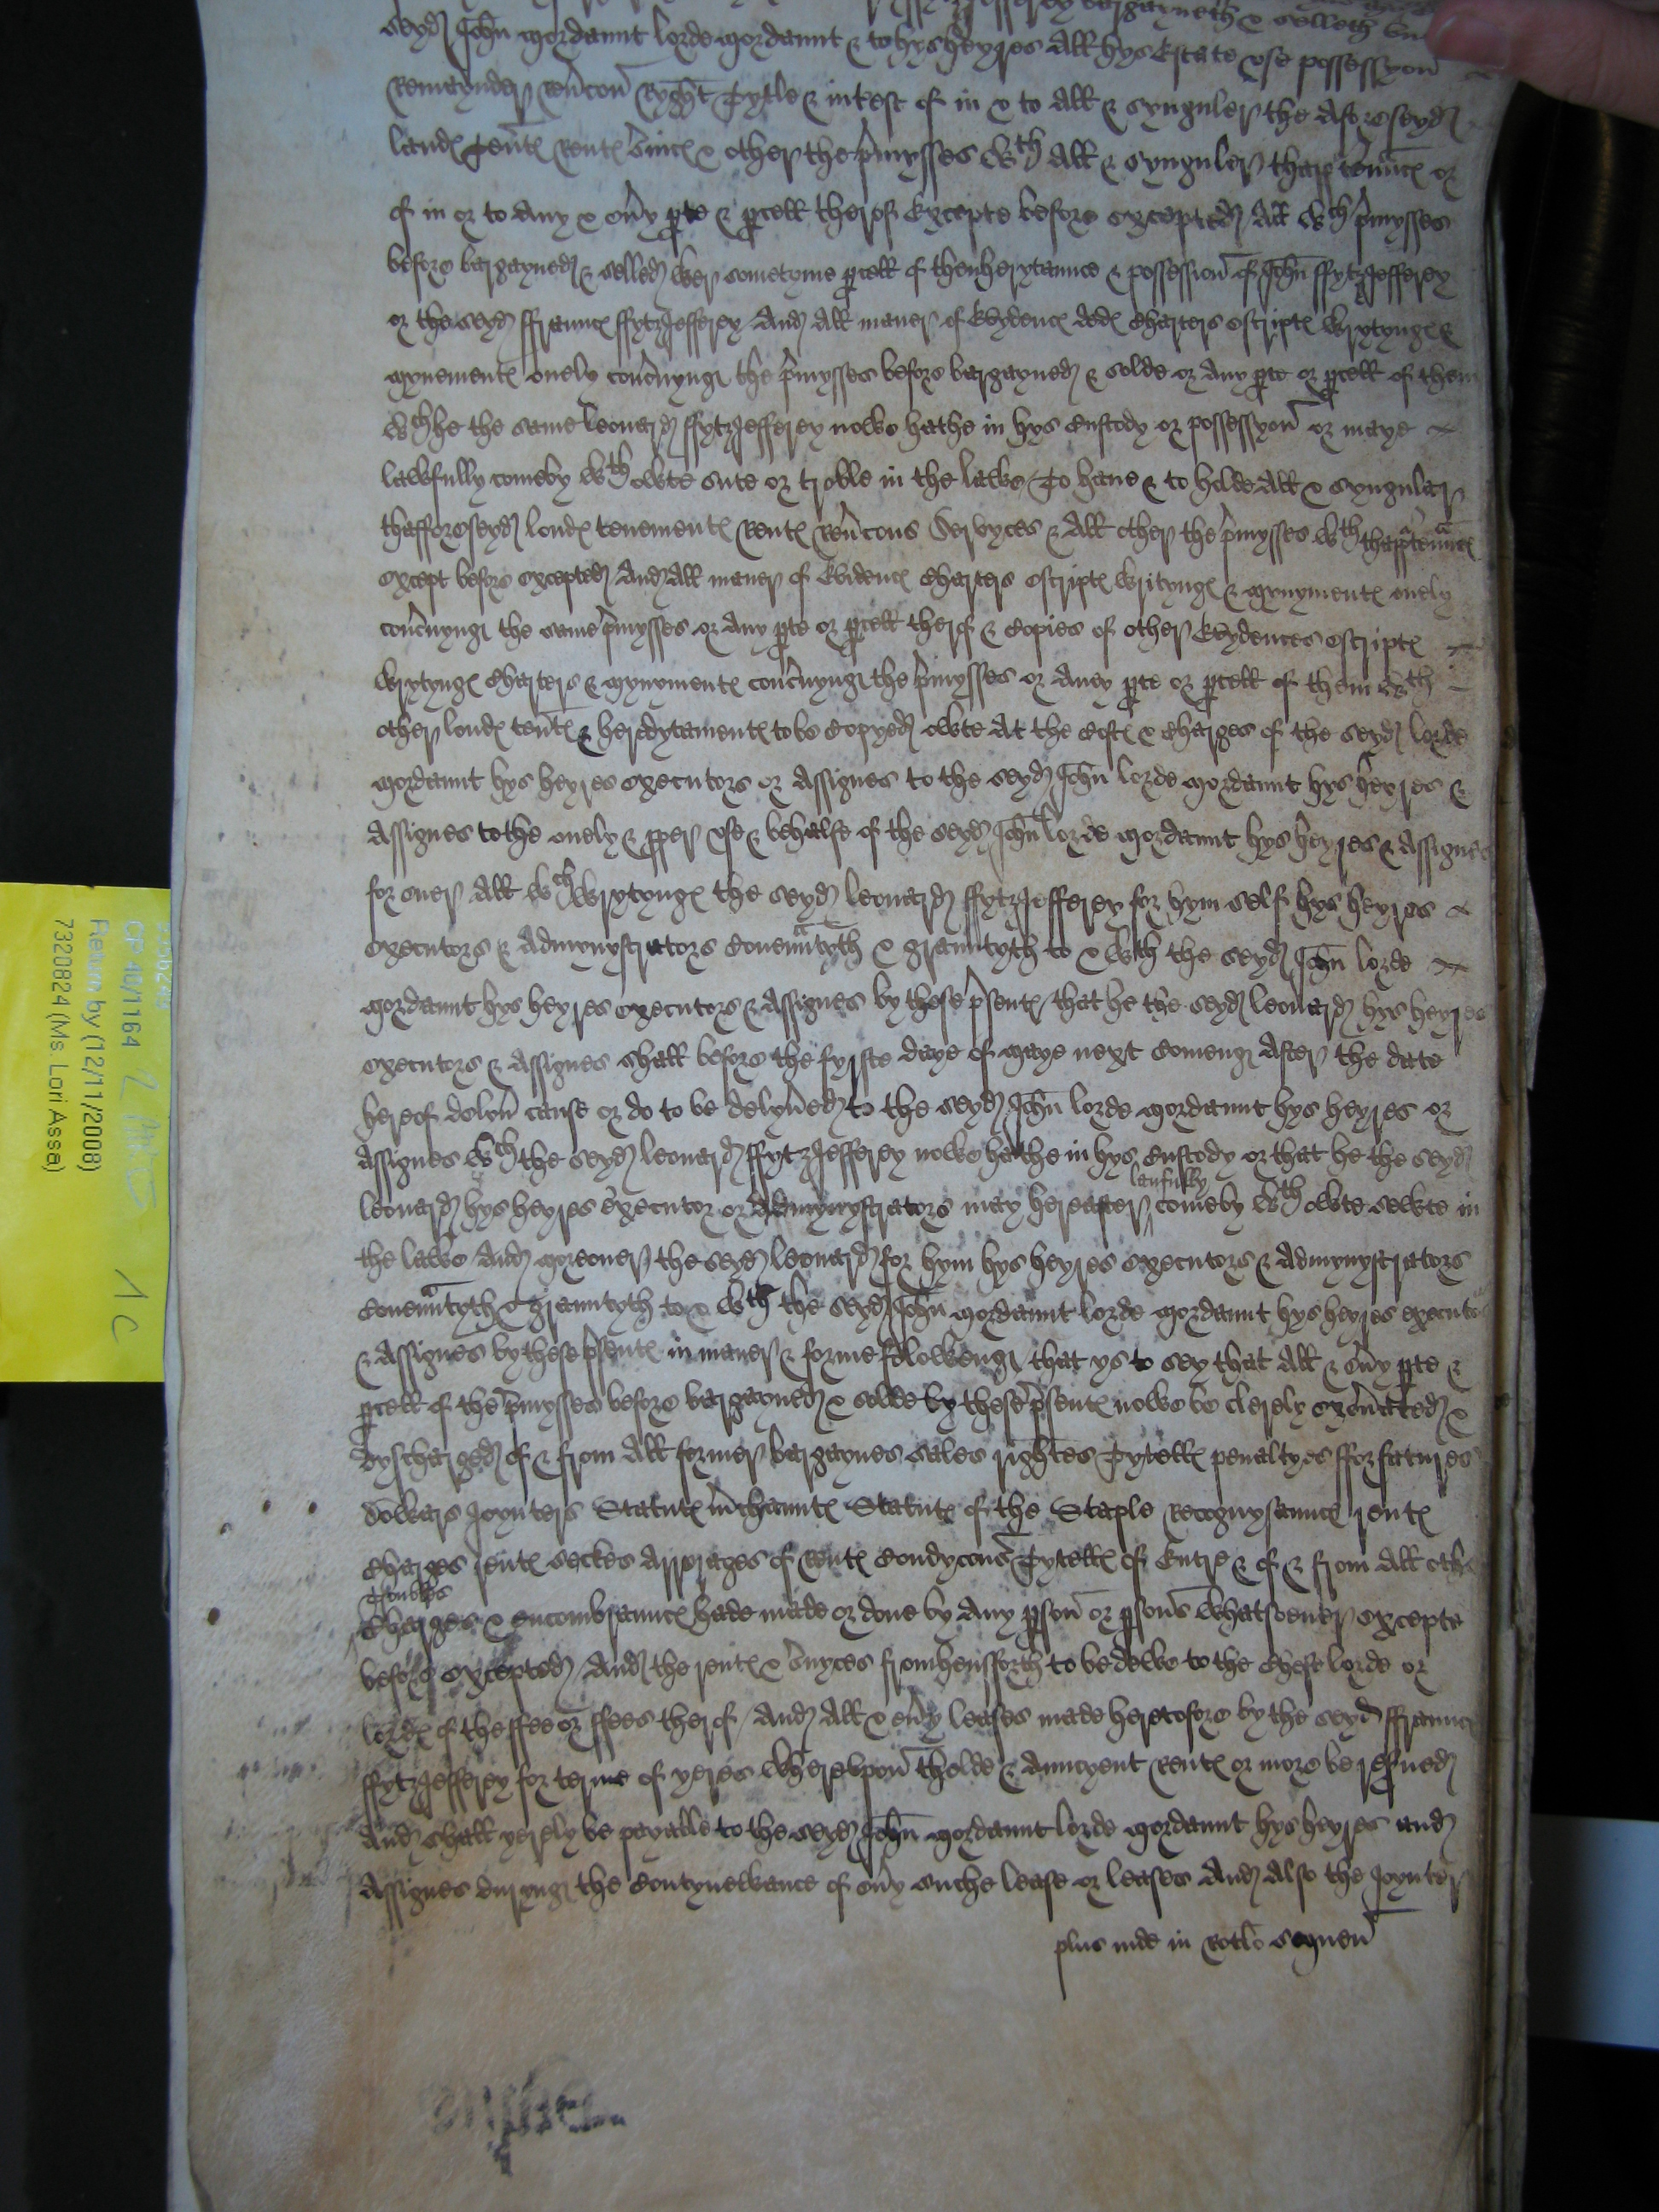 bargayneth & selleth
seyd John Mordaunt lorde Mordaunt & to hys heyres All hys Estate use possessyon
Remaynder Rev'con Ryght Tytle & int'est of in & to All & synguler the Aforeseyd
land ten't Rent s'vic & other the p'mysses wth All & synguler thapp'ten'nc or
of in or to Any & ev'y p'te & p'cell therof Excepte before excepted All wch p'mysses
before bargayned & selled wer sometyme p'cell of thenherytaunce & possession of John ffytzJefferey
or the seyd ffraunc ffytzJefferey And All maner of Evydenc ded Charters escript wrytyng &
mynement onely conc'nyng the p'mysses before bargayned & solde or Any p'te or p'cell of them
wch he the same Leonard ffytzJefferey nowe hathe in hys Custody or possessyon or maye
lawfully comeby wth owte sute or troble in the lawe To have & to holde All & synguler
thafforeseyd lond tenement Rent Rev'cons Servyces & All other the p'mysses wth thapp'ten'nc
except before excepted And All maner of Evidenc Charters escript writyng & mynyment onely
conc'nyng the same p'mysses or Any p'te or p'cell therof & Copies of other Evydences escript
wrytyng Charters & mynyment conc'nyng the p'mysses or Aney p'te or p'cell of them wth
other lond ten't & heredytament to be Copyed owte At the Cost & Charges of the seyd lorde
Mordaunt hys heyres executors or Assignes to the seyd John lorde Mordaunt hys heyres &
Assignes to the onely & p'per use & behalfe of the seyd John lorde Mordaunt hys heyres & Assignes
for ever All wch wrytyng the seyd Leonard ffytzJefferey for hym self hys heyres
executors & Admynystrators Coven'ntyth & grauntyth to & wth the seyd John lorde
Mordaunt hys heyres executors & Assignes by these p'sent that he the seyd Leonard hys heyres
executors & Assignes shall before the fyrste daye of Maye next Comeng After the date
hereof delyv' cause or do to be delyv'ed to the seyd John lorde Mordaunt hys heyres or
Assignes wch the seyd Leonard ffytzJefferey nowe hathe in hys Custody or that he the seyd
Leonard hys heyres executor or Admynystrators may hereafter laufully comeby wth owte sewte in
the lawe And Moreover the seyd Leonard for hym hys heyres executors & Admynystrators
Coven'ntyth & grauntyth to & wth the seyd John Mordaunt lorde Mordaunt hys heyres executors
& Assignes by these p'sent in maner & forme foloweng that ys to sey that All & ev'y p'te &
p'cell of the p'mysses before bargayned & solde by these p'sent nowe be clerely exon'ated &
dyscharged of & from All former bargaynes sales rightes Tytell penaltyes fforfatures
dowers Joynters Statut m'chaunt Statut of the Staple Recognysaunc rent
Charges rent seckes Arrerages of Rent Condycons Tytell of Entre & of & from All other
troubles
Charges & encombraunc hade made or done by Any p'son or p'sons whatsoever excepte
before excepted And the rent & s'vyces fromhensforth to be dewe to the Chefe lorde or
lord of the ffee or ffees therof And All & ev'y leases made heretofore by the seyd ffraunc
ffytzJefferey for terme of yeres Wherevpon tholde & Auncyent Rent or more be res'ued
And shall yerely be payable to the seyd John Mordaunt lorde Mordaunt hys heyres and
Assignes duryng the Contynewance of ev'y suche lease or leases And Also the Joynter
plus inde in Rotlo sequen
CP 40/1164
Return by (12/11/2008)
7320824 (Ms. Lori Assa)
1C